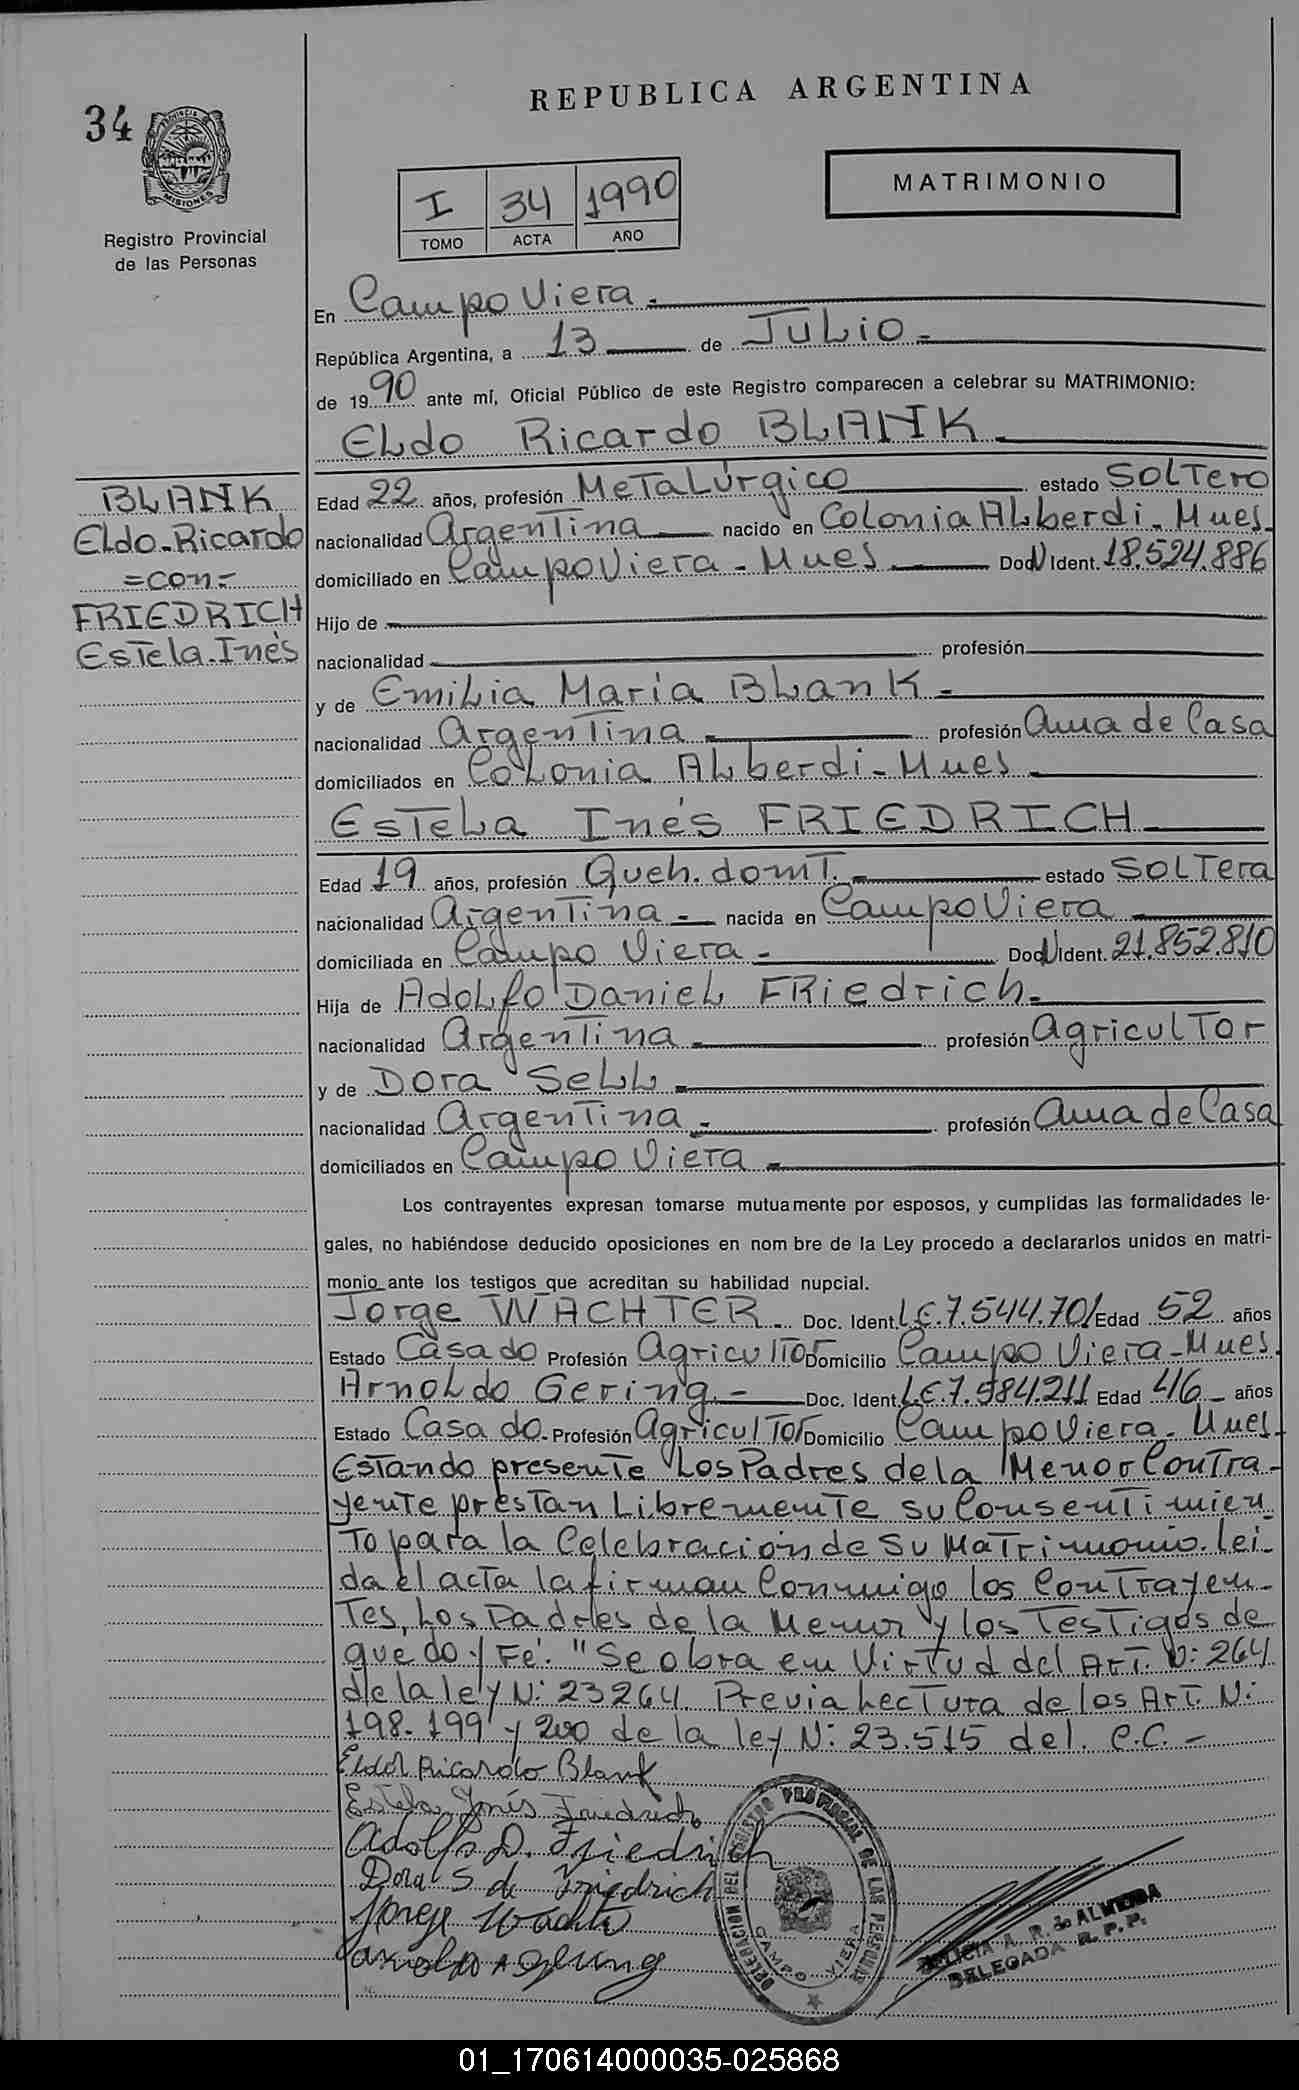 REPUBLICA ARGENTINA
34
PROVINCIA DE
MISIONES
Registro Provincial
de las Personas
I 34 1990
TOMO ACTA AÑO
MATRIMONIO
En Campo Viera.-
República Argentina, a 13 de JULIO.-
de 1990 ante mí, Oficial Público de este Registro comparecen a celebrar su MATRIMONIO:
ELdo Ricardo BLANK
BLANK
Eldo-Ricardo
=con=
FRIEDRICH
Estela-Inés
Edad 22 años, profesión MeTaLúrgico estado SOLTero
nacionalidad Argentina nacido en Colonia ALberdi-Mnes.
domiciliado en Campo Viera-Mnes Doc N Ident. 18.524.886
Hijo de
nacionalidad profesión
y de Emilia María BLanK.-
nacionalidad Argentina.- profesión Ama de Casa
domiciliados en Colonia ALberdi-Mnes
ESTeLa Inés FRIEDRICH
Edad 19 años, profesión Queh. domT.- estado SOLTera
nacionalidad Argentina.- nacida en Campo Viera
domiciliada en Campo Viera.- Doc N Ident. 21.852.810
Hija de ADOLfo DanieL FRiedrich.-
nacionalidad Argentina.- profesión AgriculTor
y de DORA SeLL.-
nacionalidad Argentina.- profesión Ama de Casa
domiciliados en Campo Viera.-
Los contrayentes expresan tomarse mutuamente por esposos, y cumplidas las formalidades le-
gales, no habiéndose deducido oposiciones en nom bre de la Ley procedo a declararlos unidos en matri-
monio ante los testigos que acreditan su habilidad nupcial.
Jorge WACHTER.- Doc. Ident. L.E.7.544.701 Edad 52 años
Estado Casado Profesión AgriculTor Domicilio Campo Viera-Mnes.
Arnoldo Gering.- Doc. Ident. L.E.7.584.211 Edad 46 años
Estado Casado.- Profesión AgriculTor Domicilio Campo Viera-Mnes.
ESTando presente Los Padres de la Menor ConTra-
yente presTan Libremente su Consentimien
To para la Celebración de Su MaTrimonio. Lei-
da el acta la firman Conmigo los ConTrayen-
Tes, Los Padres de la Menor y los TesTigos de
que doy Fe. "Se obra en VirTud del ArT. N: 264
de la ley N: 23264. Previa LecTura de los ArT. N:
198-199 y 200 de la ley N: 23.515 del. C.C.-
Eldo Ricardo Blank
Estela Inés Friedrich
Adolfo D. Friedrich
Dora S. de Friedrich
Jorge Wachter
DELEGACION DEL REGISTRO PROVINCIAL DE LAS PERSONAS
CAMPO VIERA
A. R. de ALMEIDA
DELEGADA R. P. P.
01_170614000035-025868